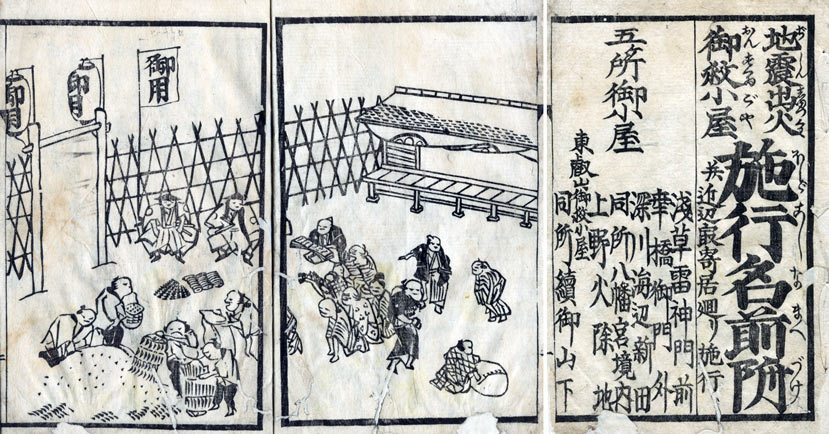 地震出火
御救小屋
施行名前附
ほどこし なまへ づけ
并近辺最寄居廻り施行
五ヶ所御小屋
淺草雷神門前
幸橋御門外
深川海辺新田
同所八幡宮境内
上野火除地
東叡山御救小屋
同所續御山下
御用